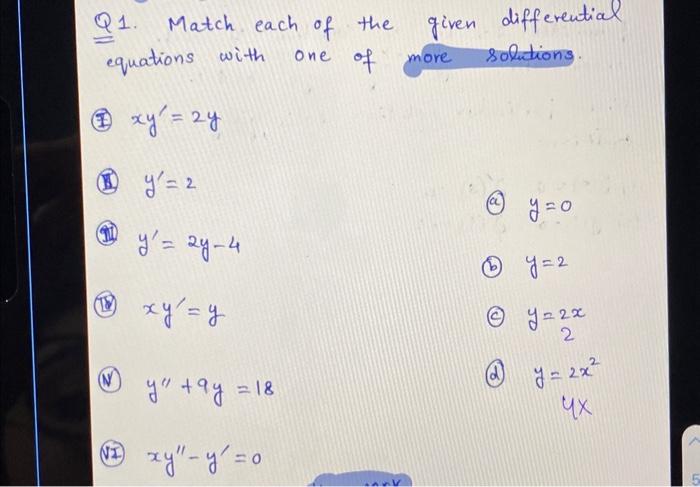 Q1. Match each of the given differential
equations with one of more solutions.
I xy' = 2y
II y' = 2
III y' = 2y-4
IV xy' = y
V y'' + 9y = 18
VI xy'' - y' = 0
a y = 0
b y = 2
c y = 2x
2
d y = 2x²
4x
5